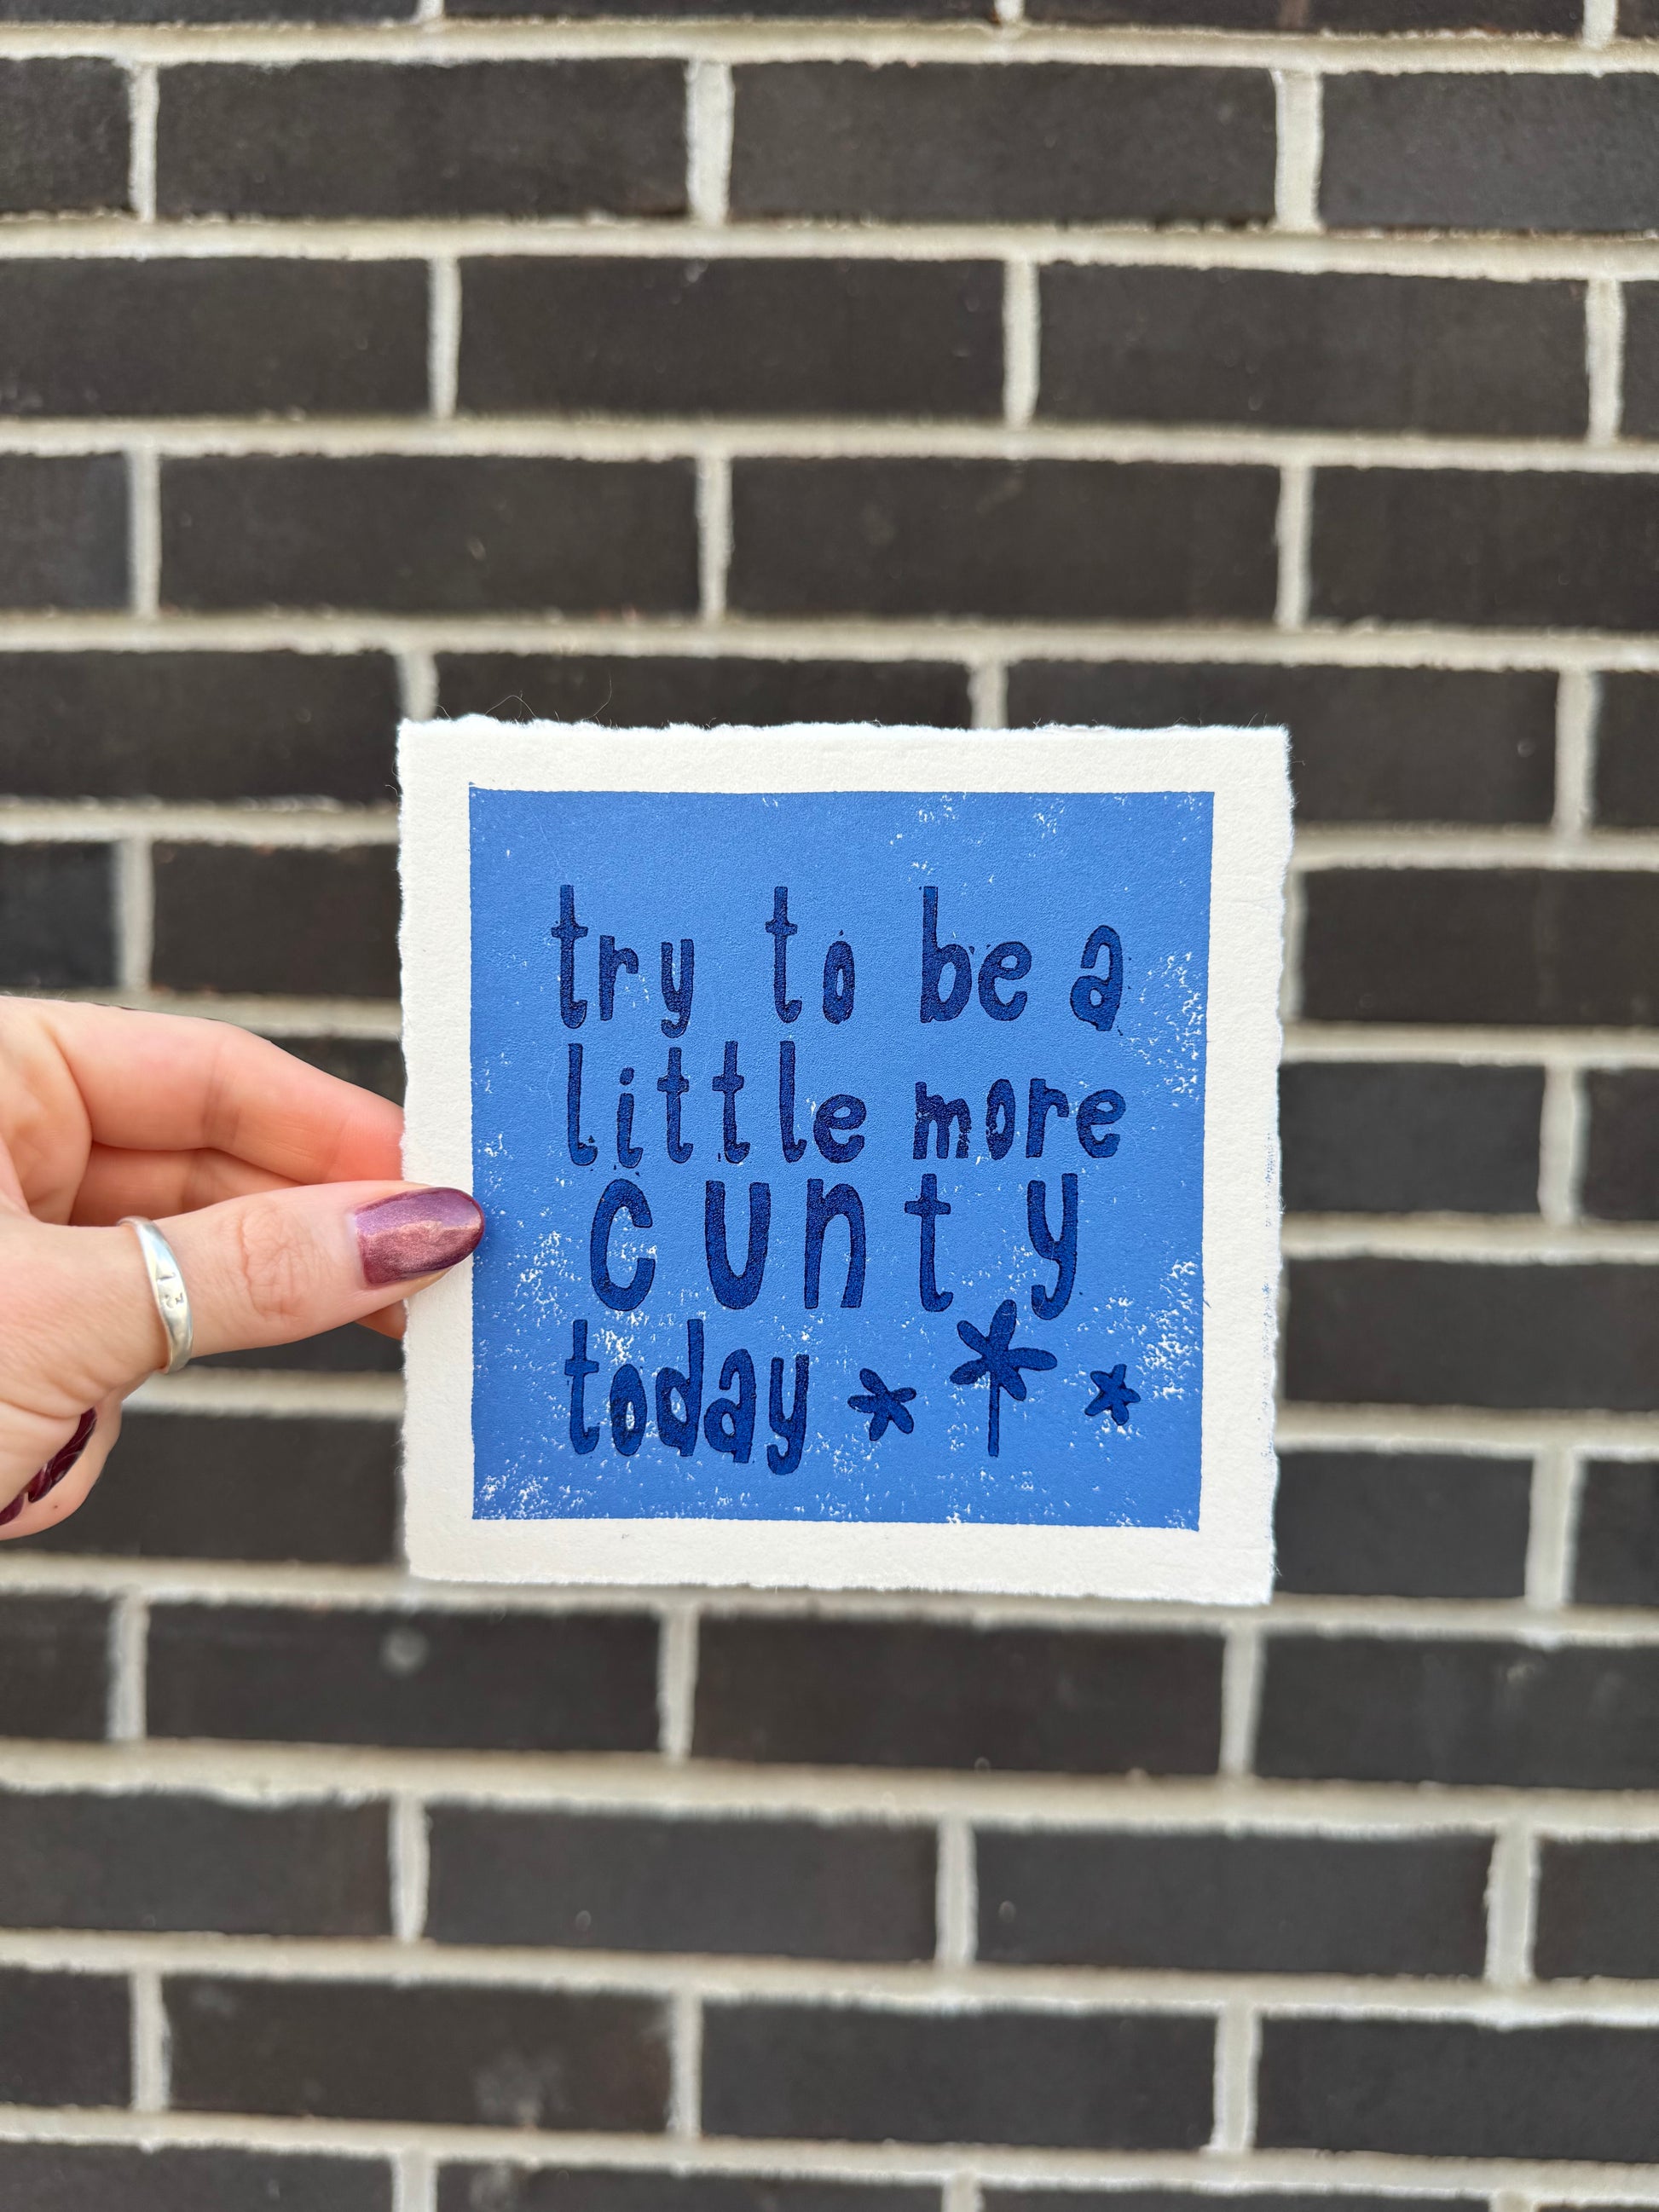 try to be a
little more
cunty
today